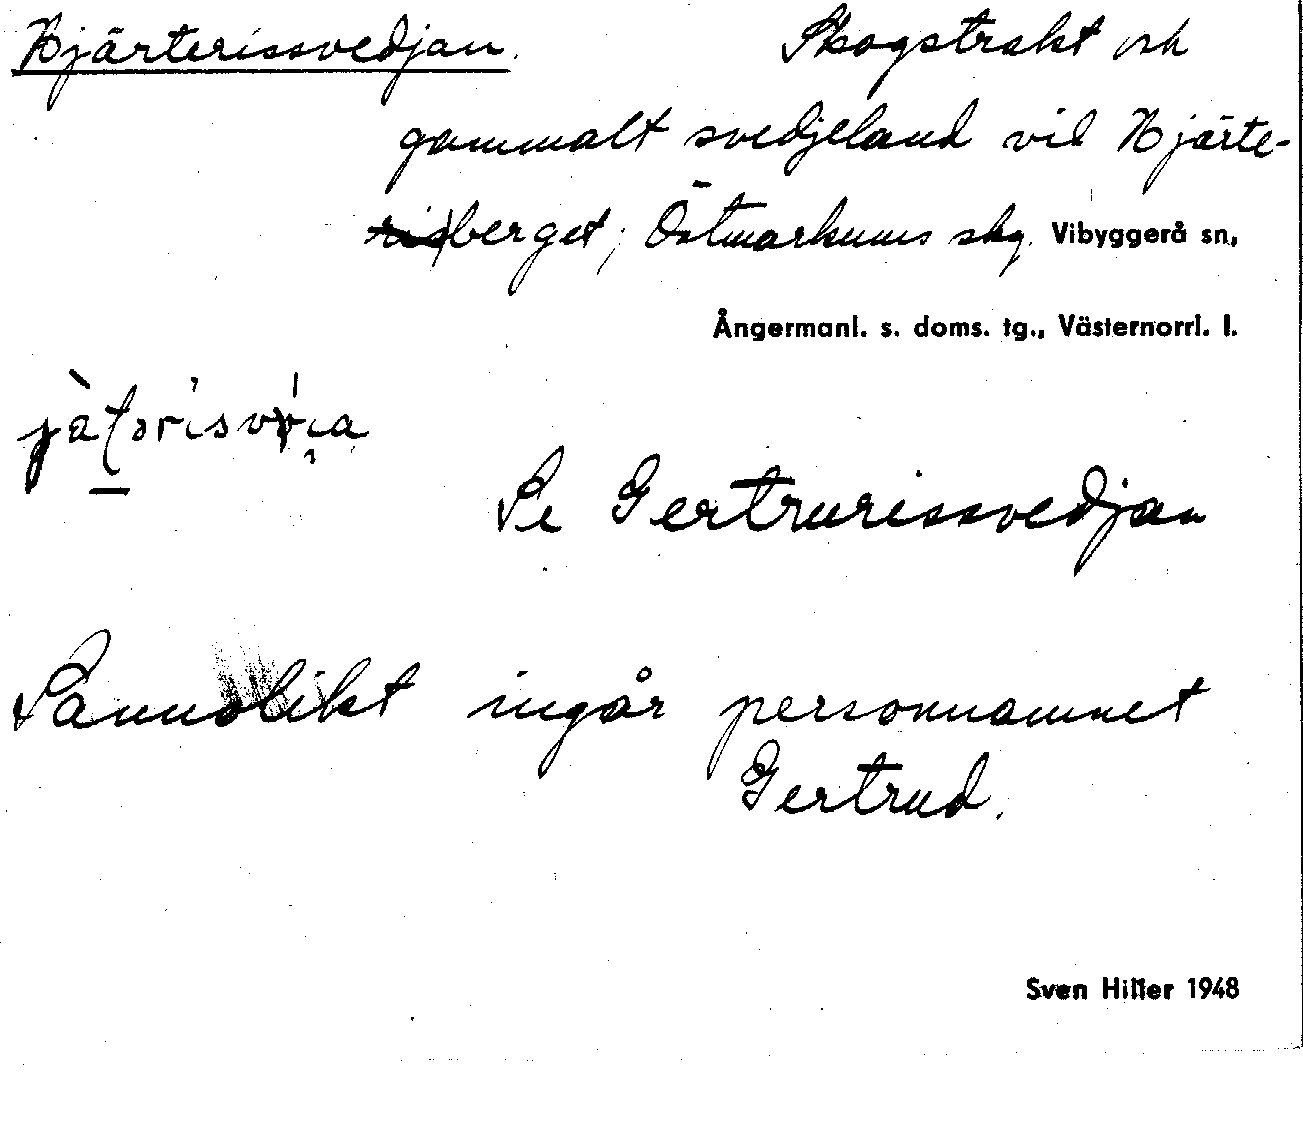 Hjärterissvedjan. Skogstrakt och
gammalt svedjeland vid Hjärte-
berget; Östmarkums skg. Vibyggerå sn,
Ångermanl. s. doms. tg., Västernorrl. l.
Se Gertrurissvedjan
Sannolikt ingår personnamnet
Gertrud.
Sven Hiller 1948